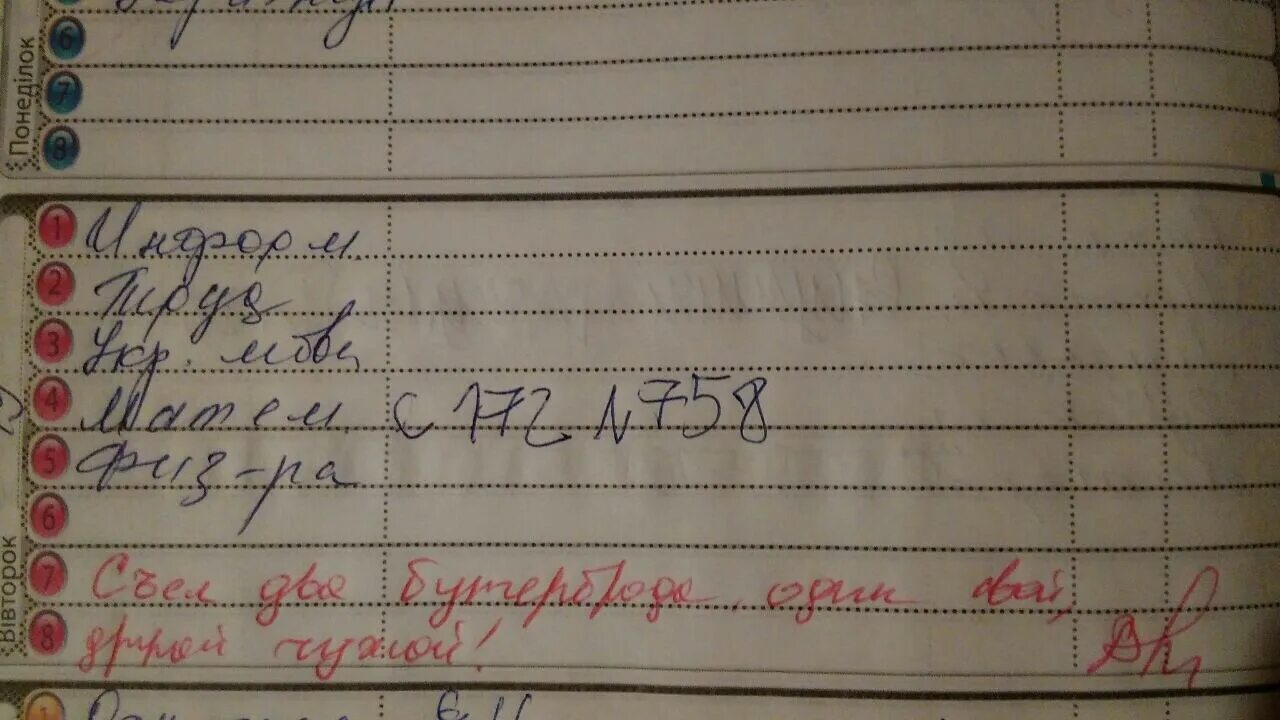 6
Понеділок
7
8
1 Информ.
2 Труд
3 Укр. мова
4 Матем. с 172 №758
5 Физ-ра
6
Вівторок
7 Съел два бутерброда, один свой,
8 другой чужой!
1